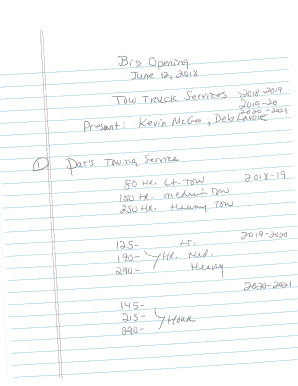 Bid Opening
June 12, 2018
Tow Truck Services 2018-2019
2019-20
2020-2021
Present: Kevin McGee, Deb Lavoie
① Pat's Towing Service
80 HR. Lt. Tow 2018-19
150 HR. medium Tow
250 HR. Heavy Tow
2019-2020
125- Lt.
190- HR. Med.
290- Heavy
2020-2021
145-
215- Hour
290-